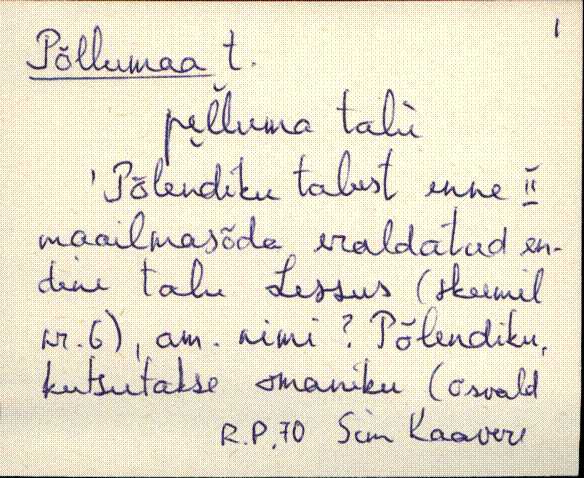 1
Põllumaa t.
pe̮l̆luma talù
'Põlendiku talust enne II
maailmasõda eraldatud en-
dine talu Lessus (skeemil
nr. 6), am. nimi? Põlendiku,
kutsutakse omaniku (Osvald
R.P, 70 Sim Kaavere